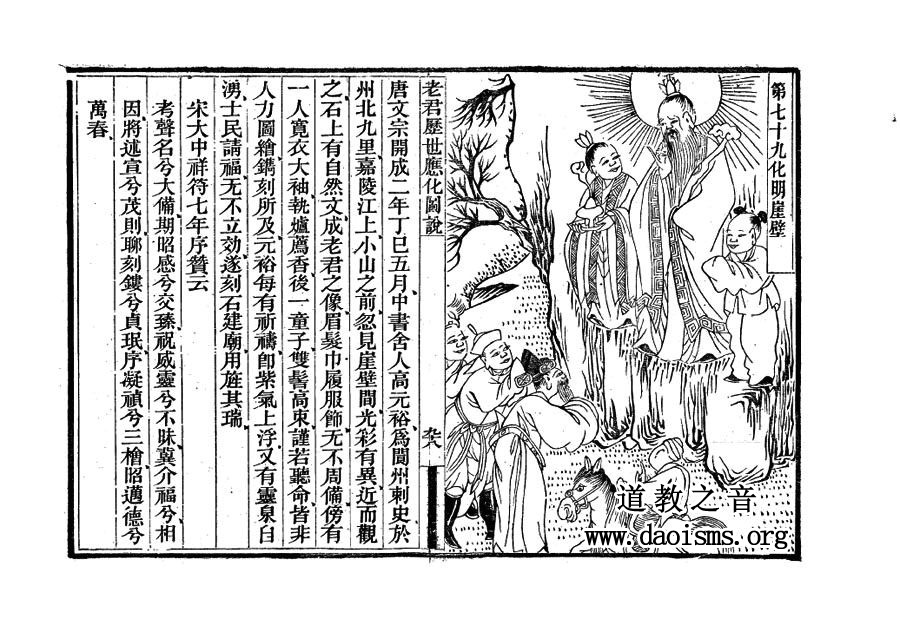 第七十九化明崖壁
老君歷世應化圖說
唐文宗開成二年丁巳五月中書舍人高元裕爲閬州刺史於
州北九里嘉陵江上小山之前忽見崖壁間光彩有異近而觀
之石上有自然文成老君之像眉髮巾履服飾无不周備傍有
一人寬衣大袖執爐薦香後一童子雙髻高束謹若聽命皆非
人力圖繪鐫刻所及元裕每有祈禱卽紫氣上浮又有靈泉自
湧士民請福无不立効遂刻石建廟用旌其瑞
宋大中祥符七年序贊云
考聲名兮大備期昭感兮交臻祝威靈兮不昧冀介福兮相
因將述宣兮茂則聊刻鏤兮貞珉序凝禎兮三檜昭邁德兮
萬春
道教之音
www.daoisms.org